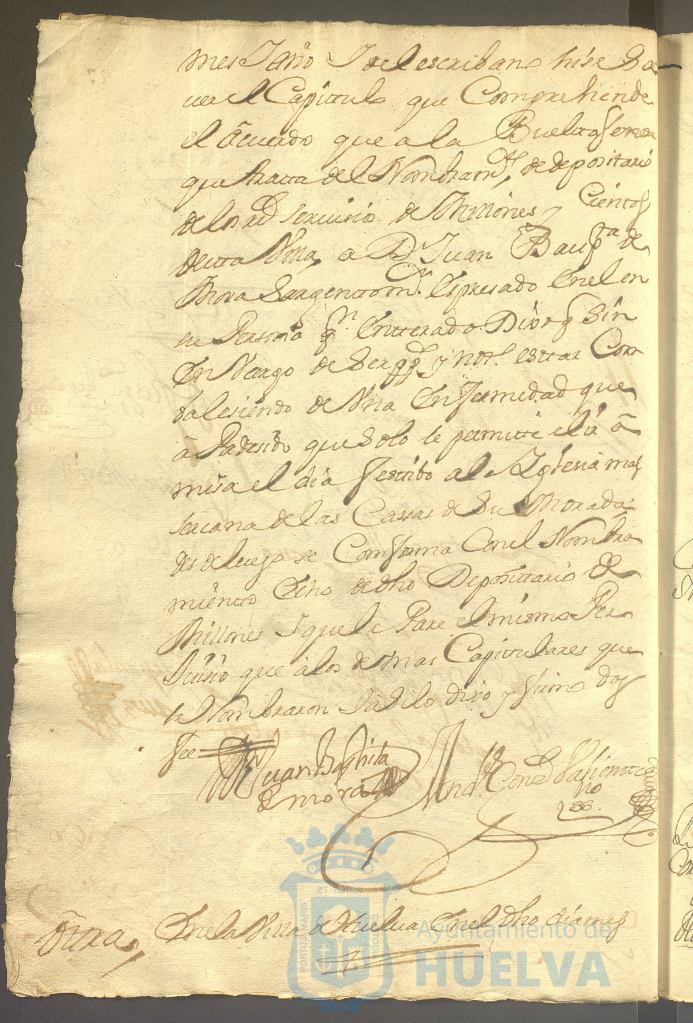 mes I año I del escribano hise Sa
ver el Capitulo que Comprehende
el acuerdo que a la Buelta
que tratta del Nombram.to de depositario
de los R.s serVisio de Millones y Cientos
desta Villa, a D.n Juan Baup.ta de
Mora Sargentto m.or Espresado En el en
su Persona q.n Entterado Dixo q.e sin
Em Vargo de Ser y esttar Com
balesiendo de Una Enfermedad que
a Padesido que solo le permitte el ir a
misa el dia festibo al Iglesia mas
sercana de las Cassas de Su Morada
desde luego se Comforma Con el Nombra
miento Echo de dho Depositario de
Millones I que le Pare el mismo Per
Juisio que a los demas Capitulares que
le Nombraron I asi lo dixo y firmo doy
fee
Juan Baptista
de mora
Otra, En la Villa de Huelva En el dho dia mes
Ayuntamiento de
HUELVA